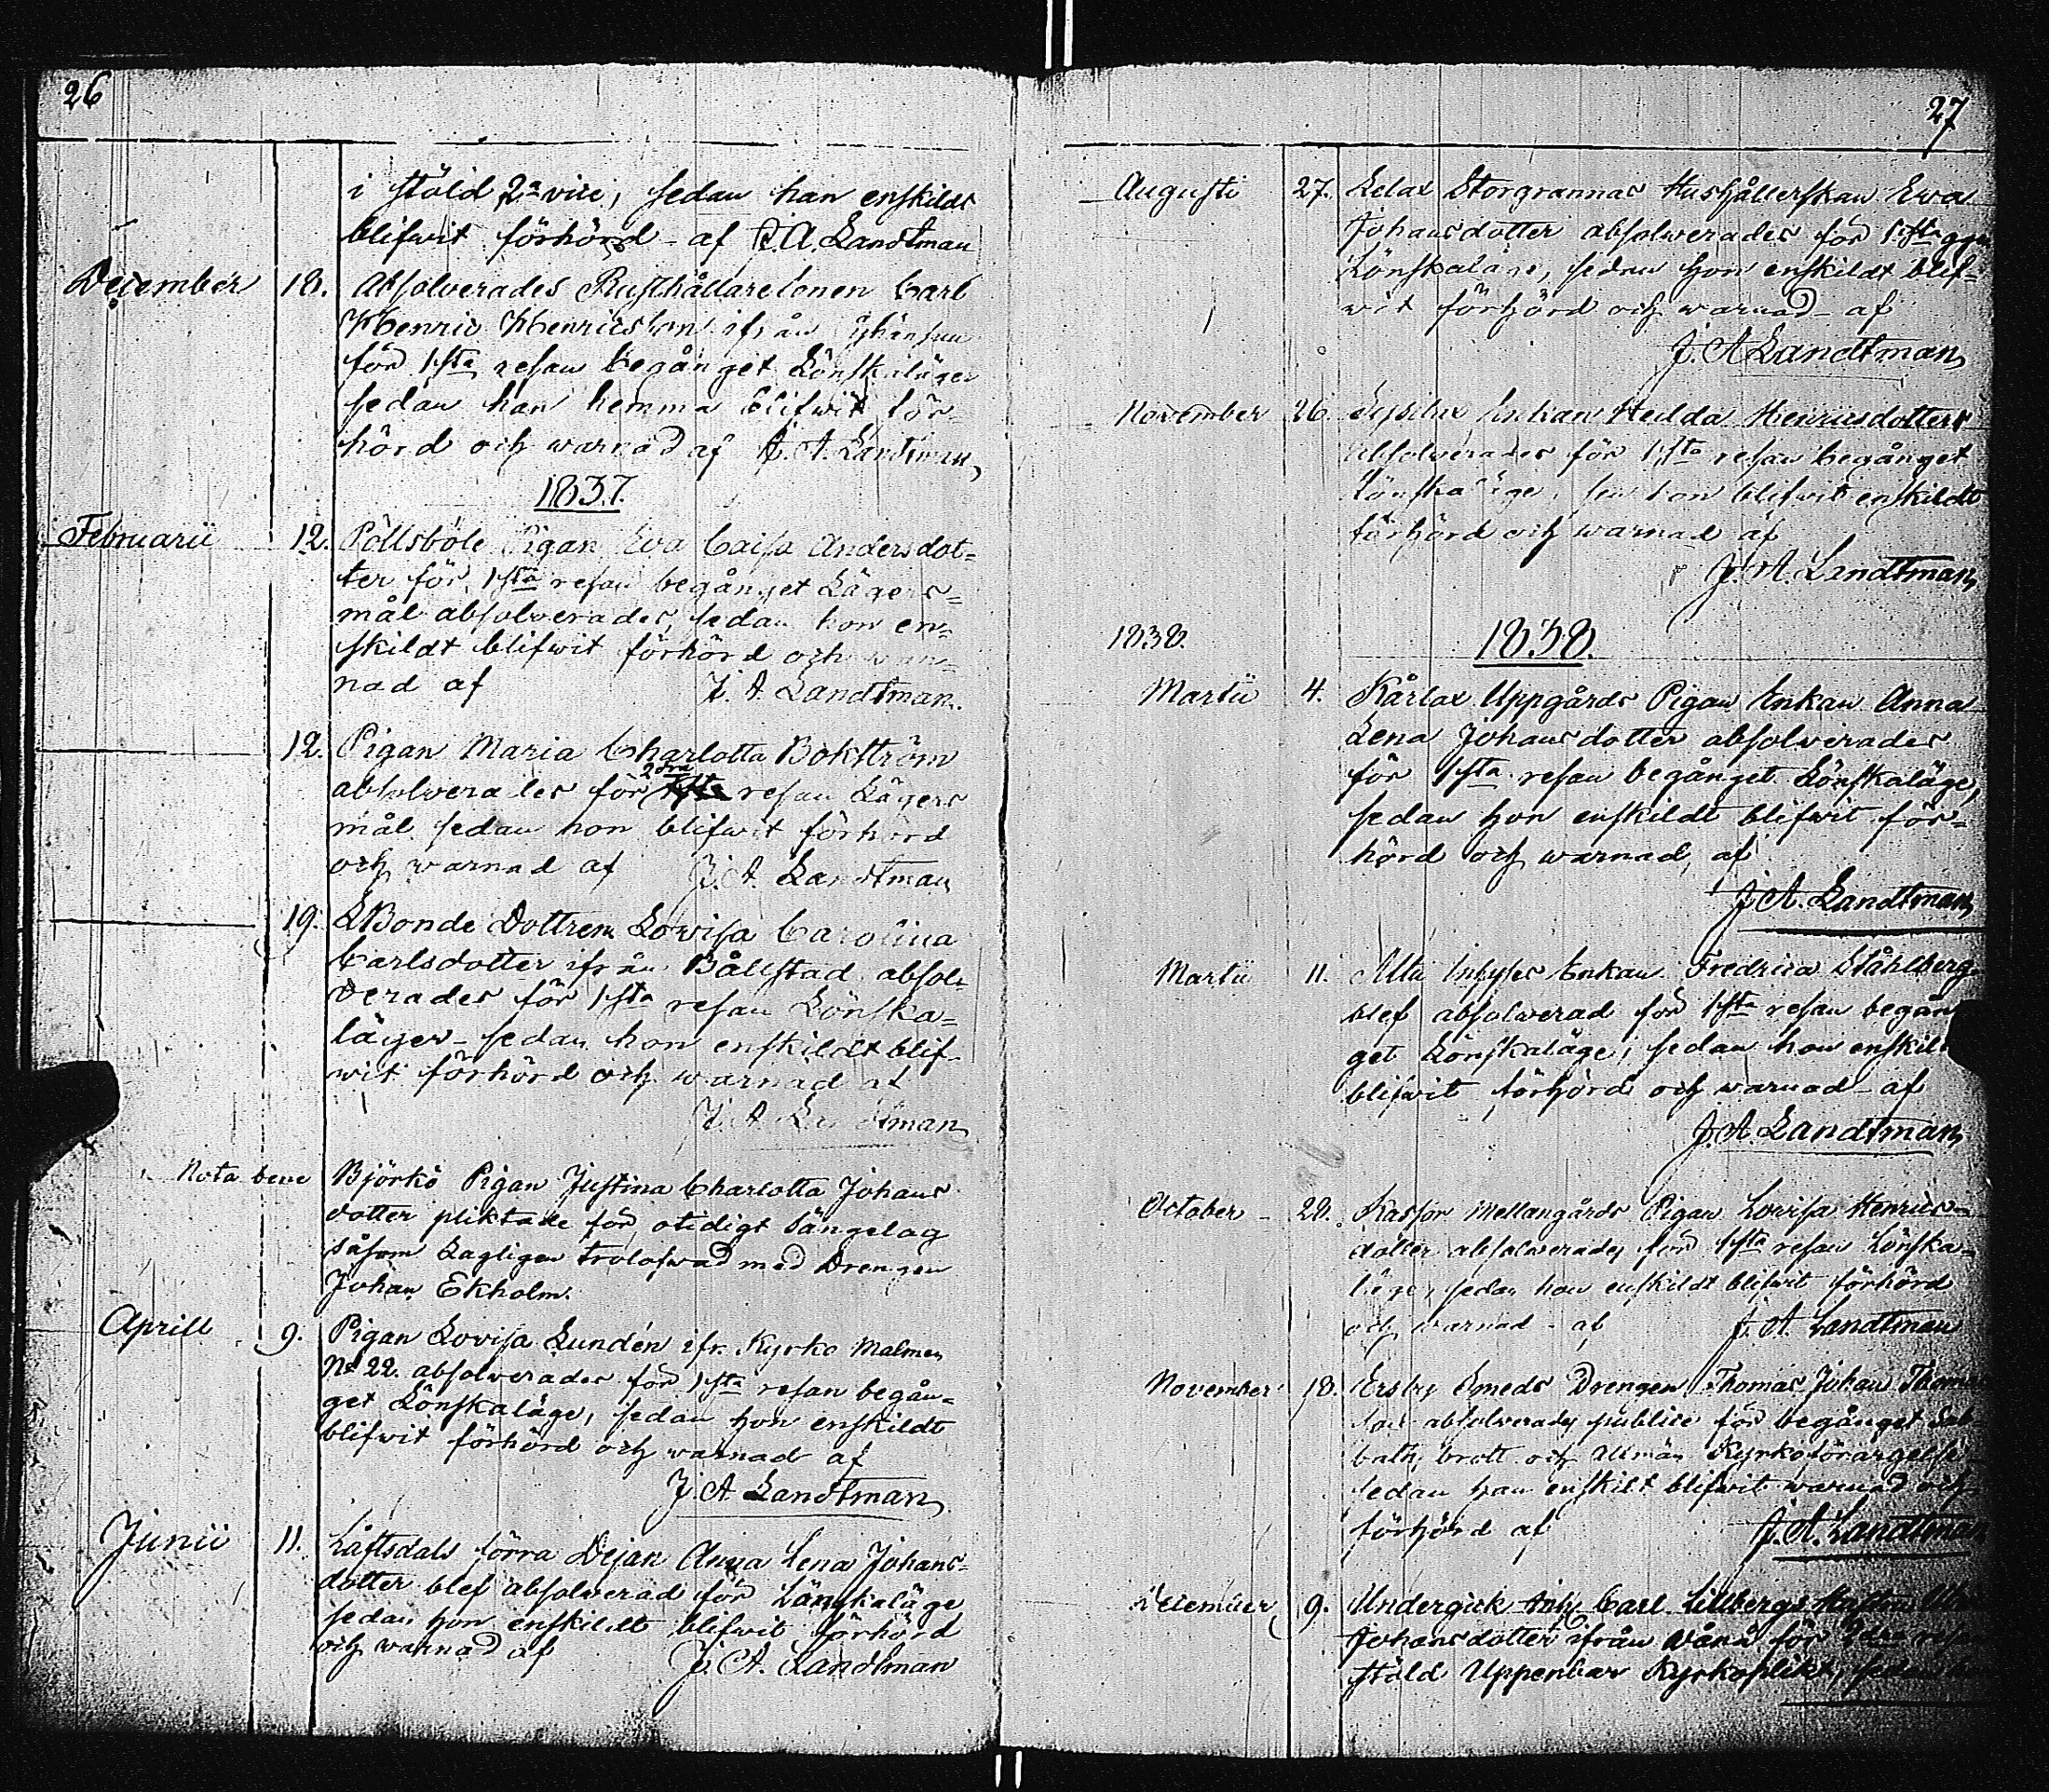 26
i stöld 2a vice, sedan han enskildt
blifwit förhörd - af J. A. Landtman
December 18. Absolverades Rusthållaresonen Carl
Henric Henricsson ifrån
för 1sta resan begånget Lönskaläger
sedan han hemma blifwit för-
hörd och warnad af J. A. Landtman
1837.
Februarii 12. Pöllsböle Pigan Eva Caisa Andersdot-
ter för 1sta resan begånget Lägers-
mål absolverades, sedan hon en-
skildt blifwit förhörd och war-
nad af J. A. Landtman.
12. Pigan Maria Charlotta Bokström
absolverades för 2dra resan Lägers
mål sedan hon blifwit förhörd
och warnad af J. A. Landtman
19. Bonde Dottren Lovisa Carolina
Carlsdotter ifrån Bållstad absol-
verades för 1sta resan Lönska-
läger - sedan hon enskildt blif-
wit förhörd och warnad af
J. A. Landtman
Nota bene Björkö Pigan Justina Charlotta Johans
dotter pliktade för otidigt Sängelag
såsom Lagligen trolofwad med Drengen
Johan Ekholm.
Aprill 9. Pigan Lovisa Lundén ifr. Kyrko Malmen
No 22. absolverades för 1sta resan begån-
get Lönskaläge, sedan hon enskildt
blifwit förhörd och warnad af
J. A. Landtman
Junii 11. Låftsdals förra Dejan Anna Lena Johans-
dotter blef absolverad för Lönskaläge
sedan hon enskildt blifwit förhörd
och warnad af J. A. Landtman
27
Augusti 27. Storgrannas Hushållerskan Ewa
Johansdotter absolverades för 1sta ggn
Lönskaläge, sedan hon enskildt blif-
wit förhörd och warnad - af
J. A. Landtman
November 26. Enkan Hedda Henricsdotter
absolverades för 1sta resan begånget
Lönskaläge, sen hon blifwit enskildt
förhörd och warnad af
J. A. Landtman
1838. 1838.
Martii 4. Kårlax Uppgårds Pigan Enkan Anna
Lena Johansdotter absolverades
för 1sta resan begånget Lönskaläge,
sedan hon enskildt blifwit för-
hörd och warnad, af
J. A. Landtman
Martii 11. Enkan Fredrica Ståhlberg
blef absolverad för 1sta resan begån
get Lönskaläge, sedan hon enskild
blifwit förhörd och warnad - af
J. A. Landtman
October - 22. Kasför Mellangårds Pigan Lovisa Henrics-
dotter absolverades för 1sta resan Lönska-
läge, sedan hon enskildt blifwit förhörd
och warnad - af J. A. Landtman
November 18. Ersby Smeds Drengen Thomas Johan Thom
son absolverades publice för begånget Sab-
bath, brott och allmän Kyrkoförargelse
sedan han enskilt blifwit warnad och
förhörd af J. A. Landtman
December 9. Undergick Inh. Carl Lillbergs Hustru
Johansdotter ifrån Vånå för 2dra resan
stöld Uppenbar Kyrkoplikt, sedan